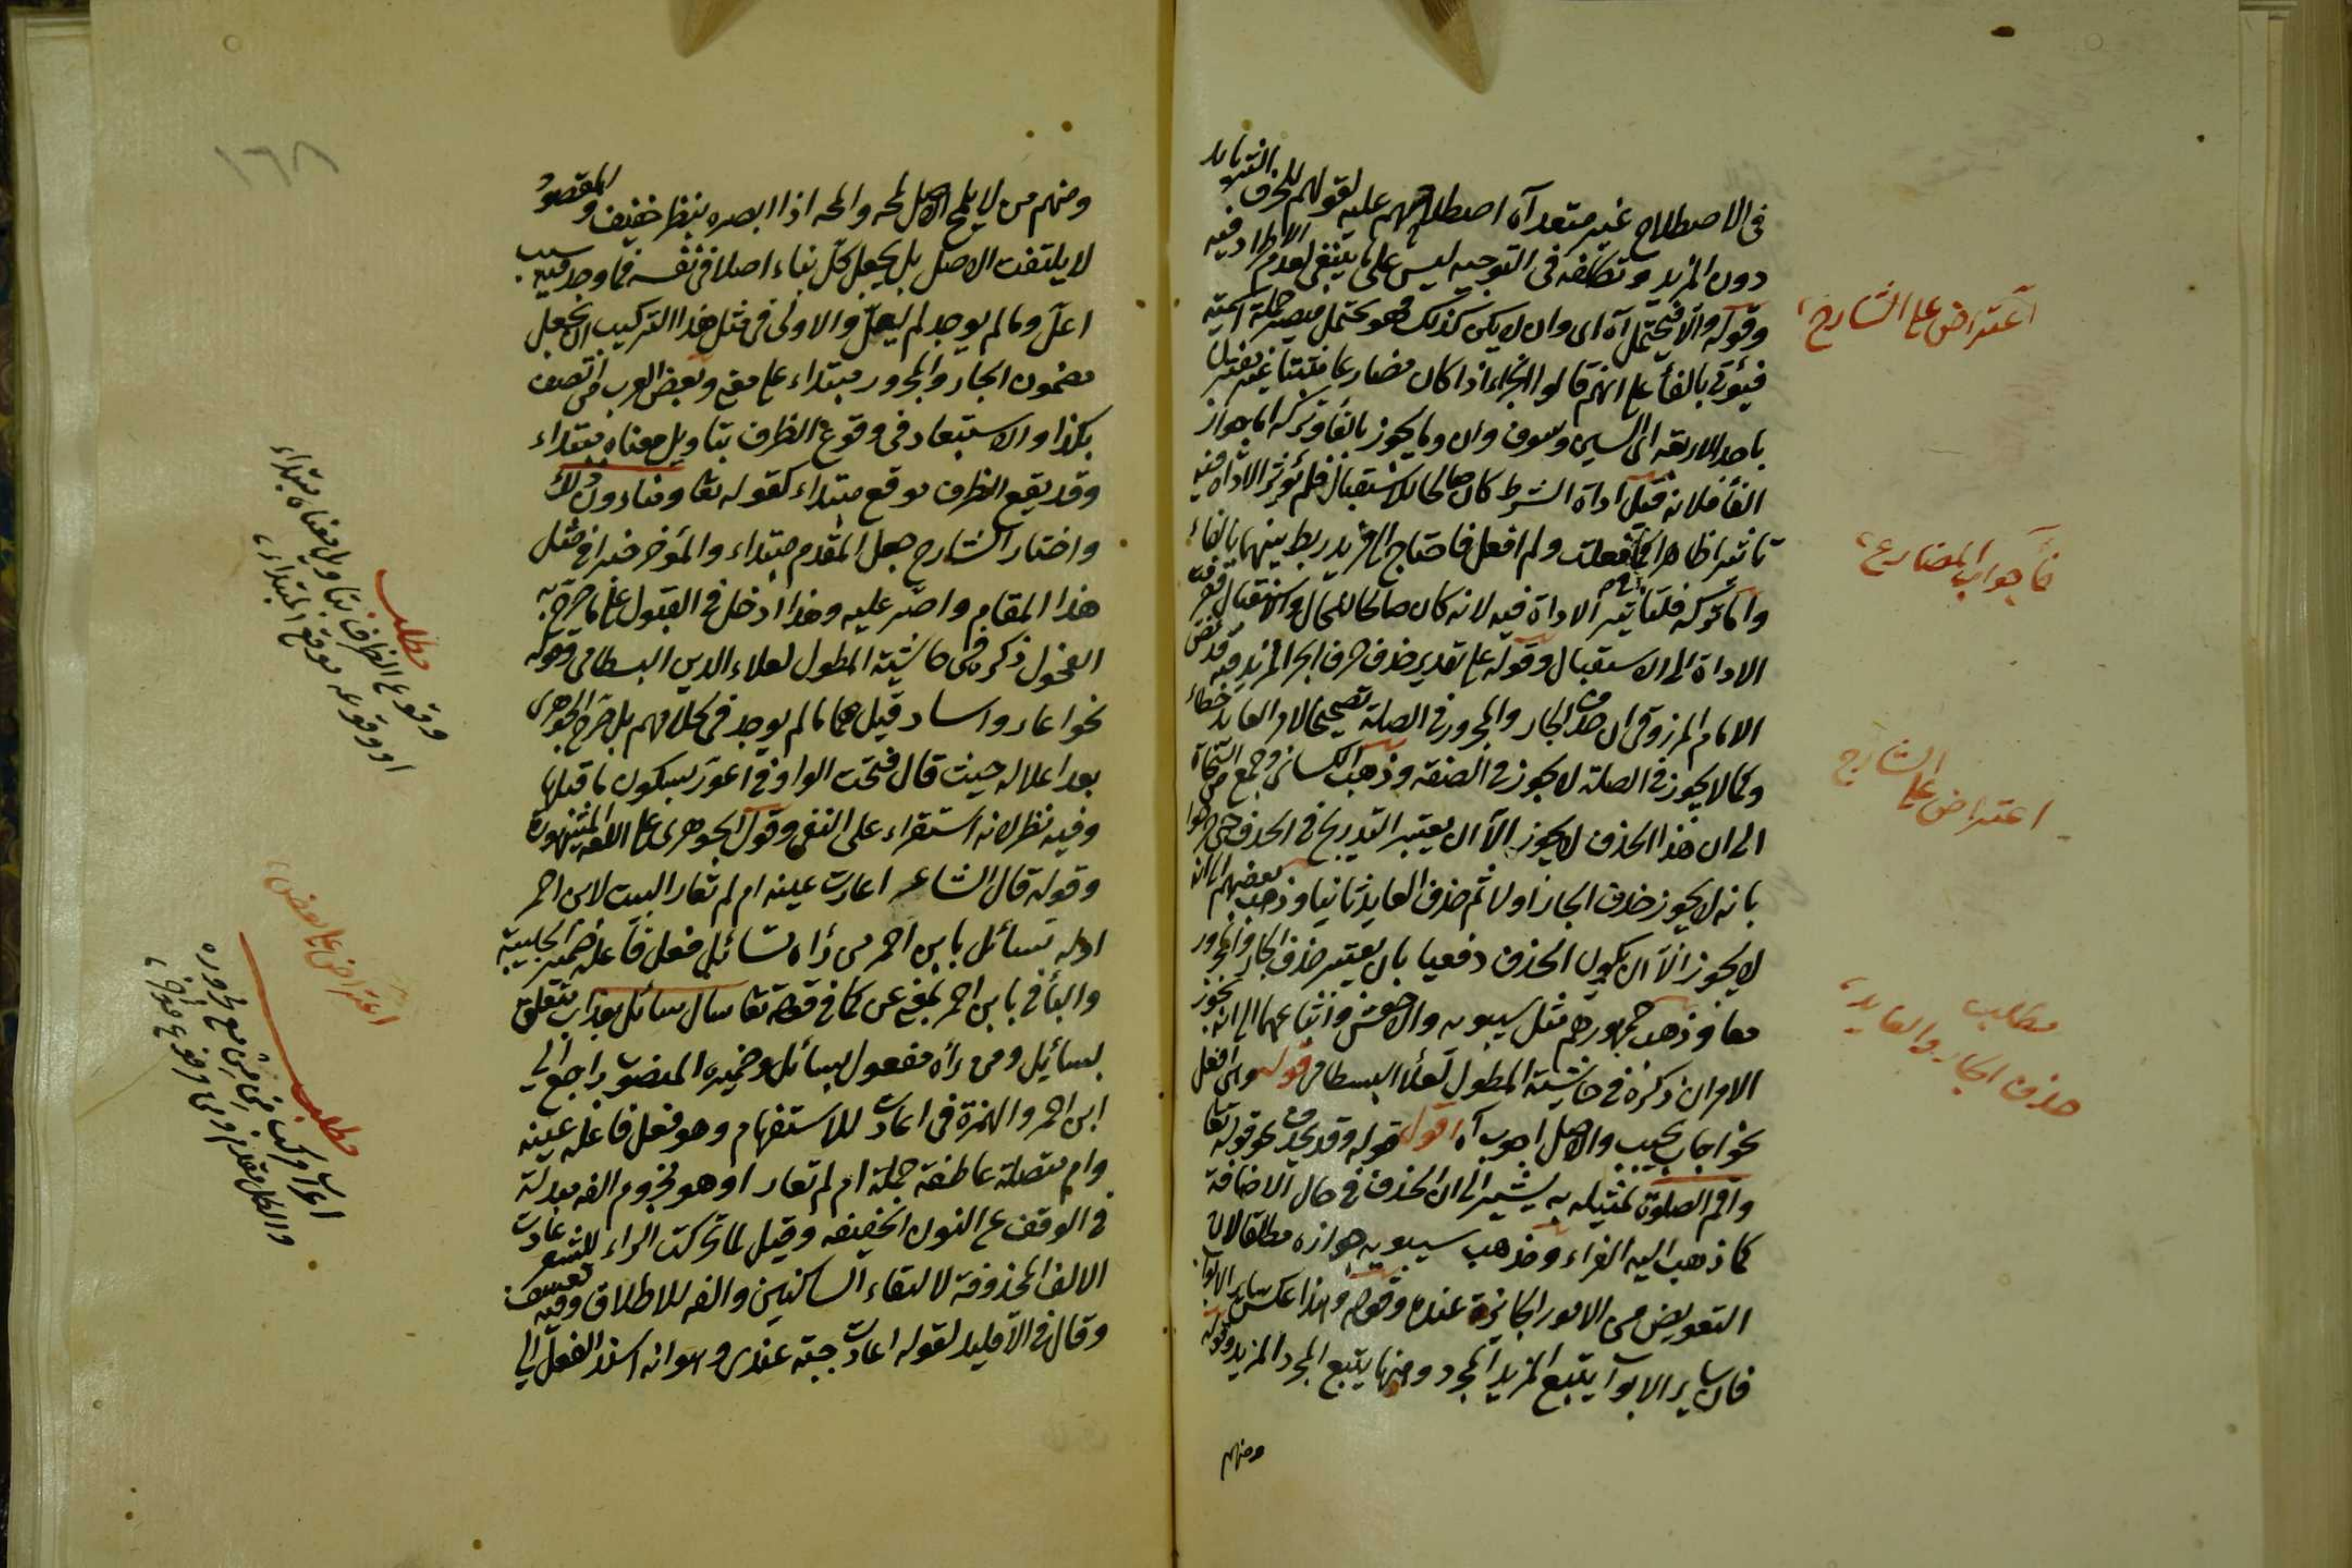 في الاصطلاح غير متعد آه اصطلاحهم عليه لقولهم للحرف
دون المزيد وتكلفه في التوجيه ليس على ما ينبغي لعدم الاطراد فيه
وقوله والا فيحتمل آه اى وان لا يكن كذلك فهو يحتمل
فيؤتى بالفأ على انهم قالوا الجزاء اذا كان مضارعا مثبتا غير
باحد الاربعة اى السين وسوف وان وما يجوز بالفأ وتركه اما جواز
الفأ فلانه قبل اداة الشرط كان صالحا للاستقبال فلم تؤثر الاداة فيه
تأثيرا ظاهرا كما فعلت ولم افعل فاحتاج الى مزيد ربط بينهما بالفاء
واما تركه فلتأثير الاداة فيه لانه كان صالحا للحال والاستقبال
الاداة الى الاستقبال وقوله على تقدير حذف حرف الجر المزيد فيه
الامام المرزوقى ان حذف الجار والمجرور في الصلة تصحيحا لامر العايد خطاء
وكما لا يجوز في الصلة لا يجوز في الصفة وذهب الكسائى وجمع من النحاة
الى ان هذا الحذف لا يجوز الا ان يعتبر التدريج في الحذف
بانه لا يجوز حذف الجار اولا ثم حذف العايد ثانيا وذهب بعضهم الى انه
لا يجوز الا ان يكون الحذف دفعيا بان يعتبر حذف الجار والمجرور
معا وذهب جمهورهم مثل سيبويه والاخفش واتباعهما الى انه يجوز
الامران ذكره في حاشية المطول لعلا البسطامى قوله ومن افعل
نحو اجاب يجيب والاصل اجوب آه اقول قوله وقد يحذف نحو قوله تعا
واقم الصلوة تمثيله به يشير الى ان الحذف في حال الاضافة
كما ذهب اليه الفراء ومذهب سيبويه جوازه مطلقا لان
التعويض من الامور الجائزة عنده وقوله وهذا عكس ساير الابواب
فان ساير الابوآ يتبع المزيد المجرد ومنها يتبع المجرد المزيد وقوله
ومنهم
اعتراض على الشارح
فأ جواب المضارع
اعتراض على الشارح
مطلب
حذف الجار والعايد
١٦٨
ومنهم من لا يلمح الاصل لمحه والمحه اذا ابصره بنظر خفيف والمقصود
لا يلتفت الاصل بل يجعل كل بناء اصلا في نفسه فما وجد فيه سبب
اعل وما لم يوجد لم يعل والاولى في مثل هذا التركيب ان يجعل
مضمون الجار والمجرور مبتداء على معنى وبعض العرب من اتصف
بكذا والاستبعاد في وقوع الظرف بتاويل معناه مبتداء
وقد يقع الظرف موقع مبتداء كقوله تعا ومنا دون ذلك
واختار الشارح جعل المقدم مبتداء والمؤخر خبرا في مثل
هذا المقام واصر عليه وهذا ادخل في القبول على ما صرح به
الفحول ذكره في حاشية المطول لعلاء الدين البسطامى وقوله
نحو اعار واساد قيل هما مما لم يوجد في كلامهم بل صرح الجوهرى
بعد اعلاله حيث قال فتحت الواو في اعور لسكون ما قبلها
وفيه نظر لانه استقراء على النفى وقول الجوهرى على اللغة المشهورة
وقوله قال الشاعر اعارت عينه ام لم تعارا البيت لابن احمر
اوله تسائل بابن احمر من رأه تسائل فعل فاعله ضمير الحبيبة
والبأ في بابن احمر بمعنى عن كما في قوله تعا سال سائل بعذاب متعلق
بسائل ومن رأه مفعول بسائل وضميره المنصوب راجع الى
ابن احمر والهمزة في اعارت للاستفهام وهو فعل فاعله عينه
وام متصلة عاطفة جملة ام لم تعار او هو مجزوم الفه مبدلة
في الوقف عن النون الخفيفة وقيل لما تحركت الراء للشعر عادت
الالف المحذوفة لالتقاء الساكنين والفه للاطلاق وفيه تعسف
وقال في الاقليد لقوله اعارت جهة عندى وهو انه اسند الفعل الى
مطلب
وقوع الظرف بتاويل معناه مبتداء
او وقوعه موقع المبتداء
اعتراض على بعض
مطلب